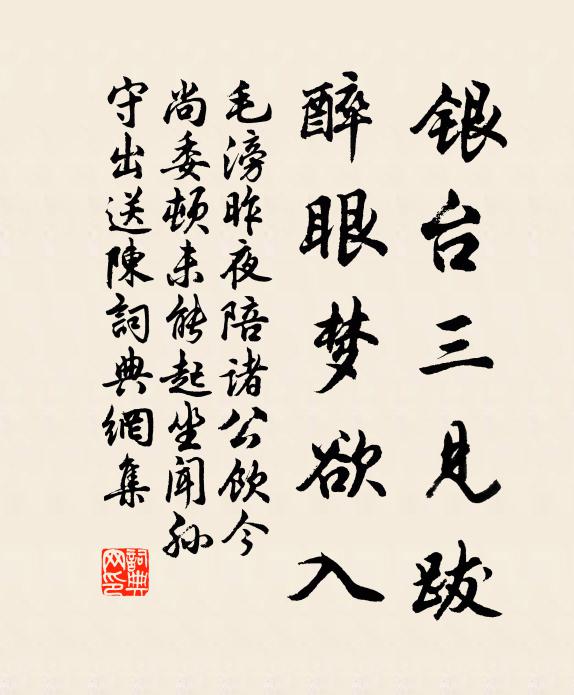 银台三见跋
醉眼梦欲入
毛滂昨夜陪诸公饮今
尚委顿未能起坐闻孙
守出送陳詞典網集
詞典網印